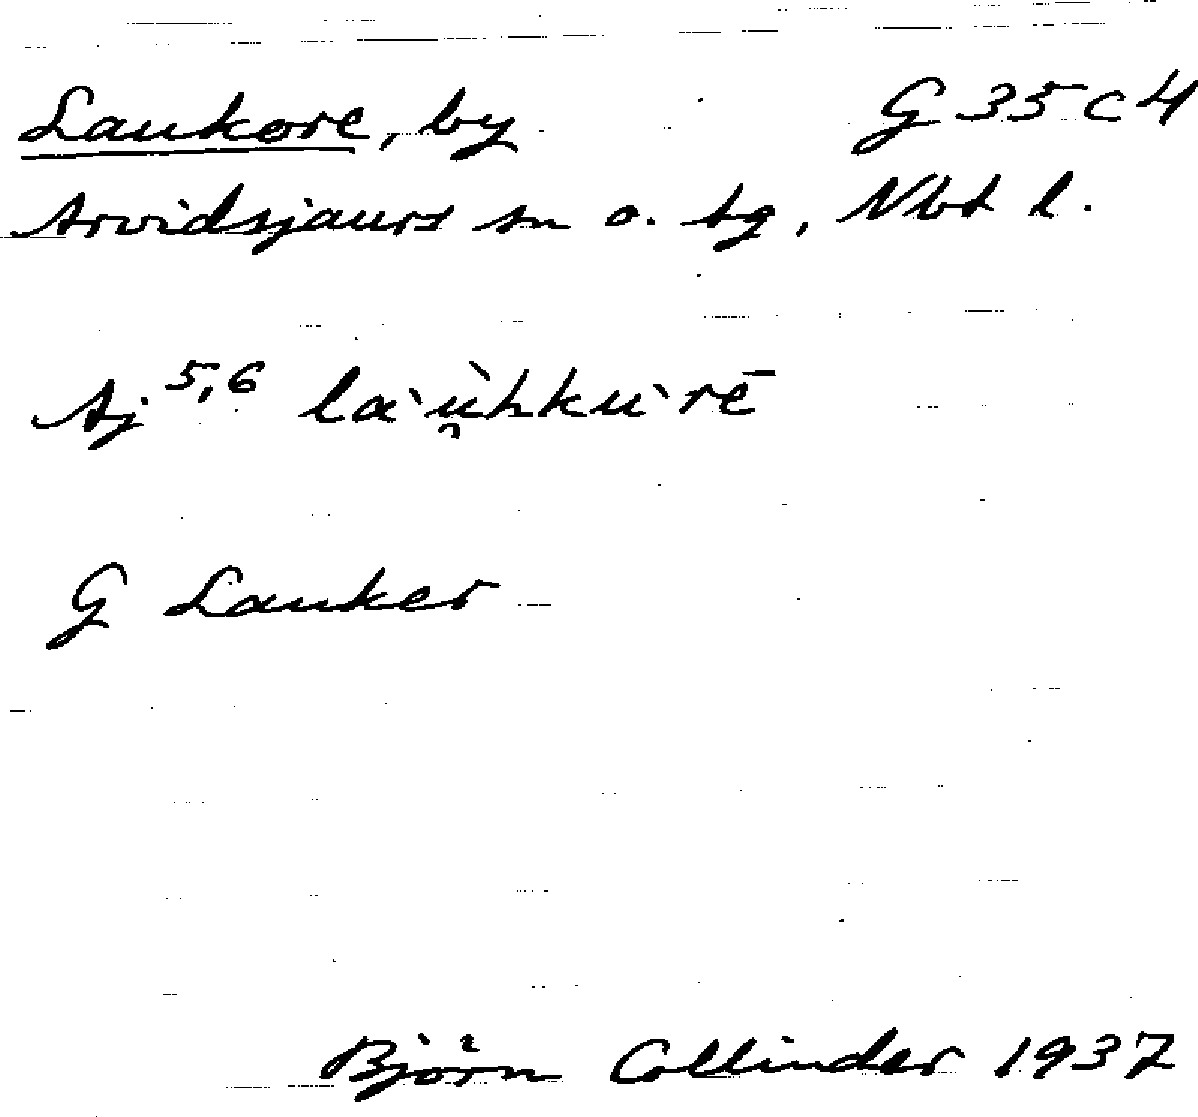 Laukore, by G 35 c 4
Arvidsjaurs sn o. tg, Nbt l.
Aj 5,6 la`ù̯hku`rē
G Lauker
Björn Collinder 1937